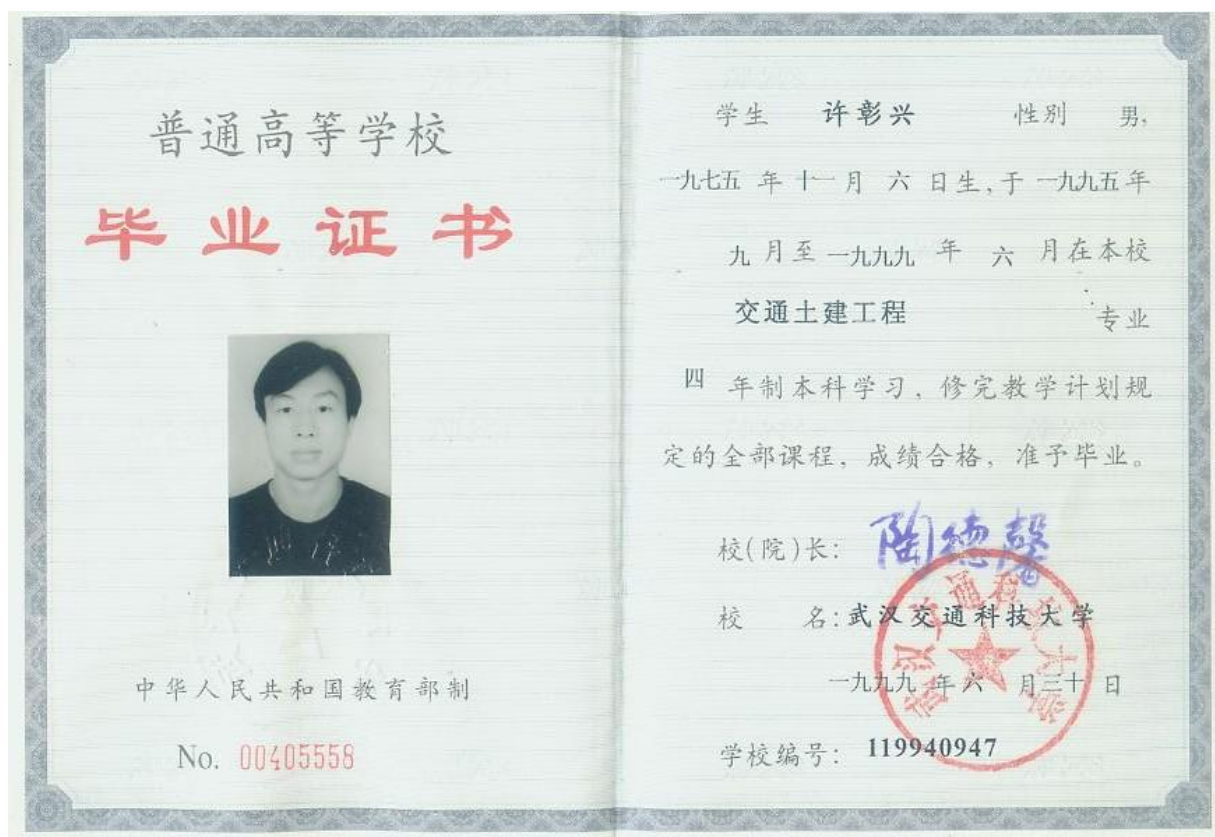 普通高等学校
毕业证书
中华人民共和国教育部制
No. 00405558
学生 许彰兴 性别 男,
一九七五 年 十一 月 六 日生,于 一九九五 年
九 月至 一九九九 年 六 月在本校
交通土建工程 专业
四 年制本科学习，修完教学计划规
定的全部课程，成绩合格，准予毕业。
校(院)长: 陶德馨
校 名: 武汉交通科技大学
一九九九 年 六 月 三十 日
学校编号: 119940947
武汉交通科技大学